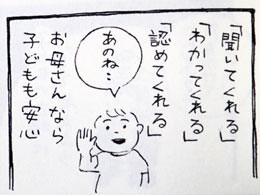 「聞いてくれる」
「わかってくれる」
「認めてくれる」
あのね…
お母さんなら
子どもも安心